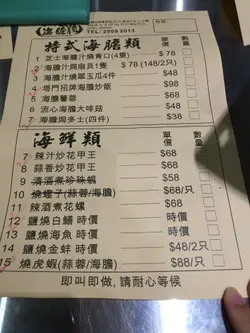 海膽倌
TEL: 2508 2013
特式海膽類 單價 數量
1 芝士海膽汁燒青口(4隻) $78
2 海膽汁焗扇貝1隻 $78 (148/2只)
3 海膽汁燒翠玉瓜4件 $48
4 塔門招牌海膽炒飯 $98
5 海膽薯蓉 $48
6 流心海膽大啤菇 $58
7 海膽焗多士(四件) $38
海鮮類 單價 數量
7 辣汁炒花甲王 $68
8 蒜香炒花甲王 $68
9 清酒煮珍珠蜆 $58
10 燒蟶子(蒜蓉/海膽) $68/只
11 辣酒煮花螺 $68
12 鹽燒白鱔 時價 時價
13 鹽燒海魚 時價 時價
14 鹽燒金蚌 時價 $48/2只
15 燒虎蝦(蒜蓉/海膽) $88/只
即叫即做, 請耐心等候